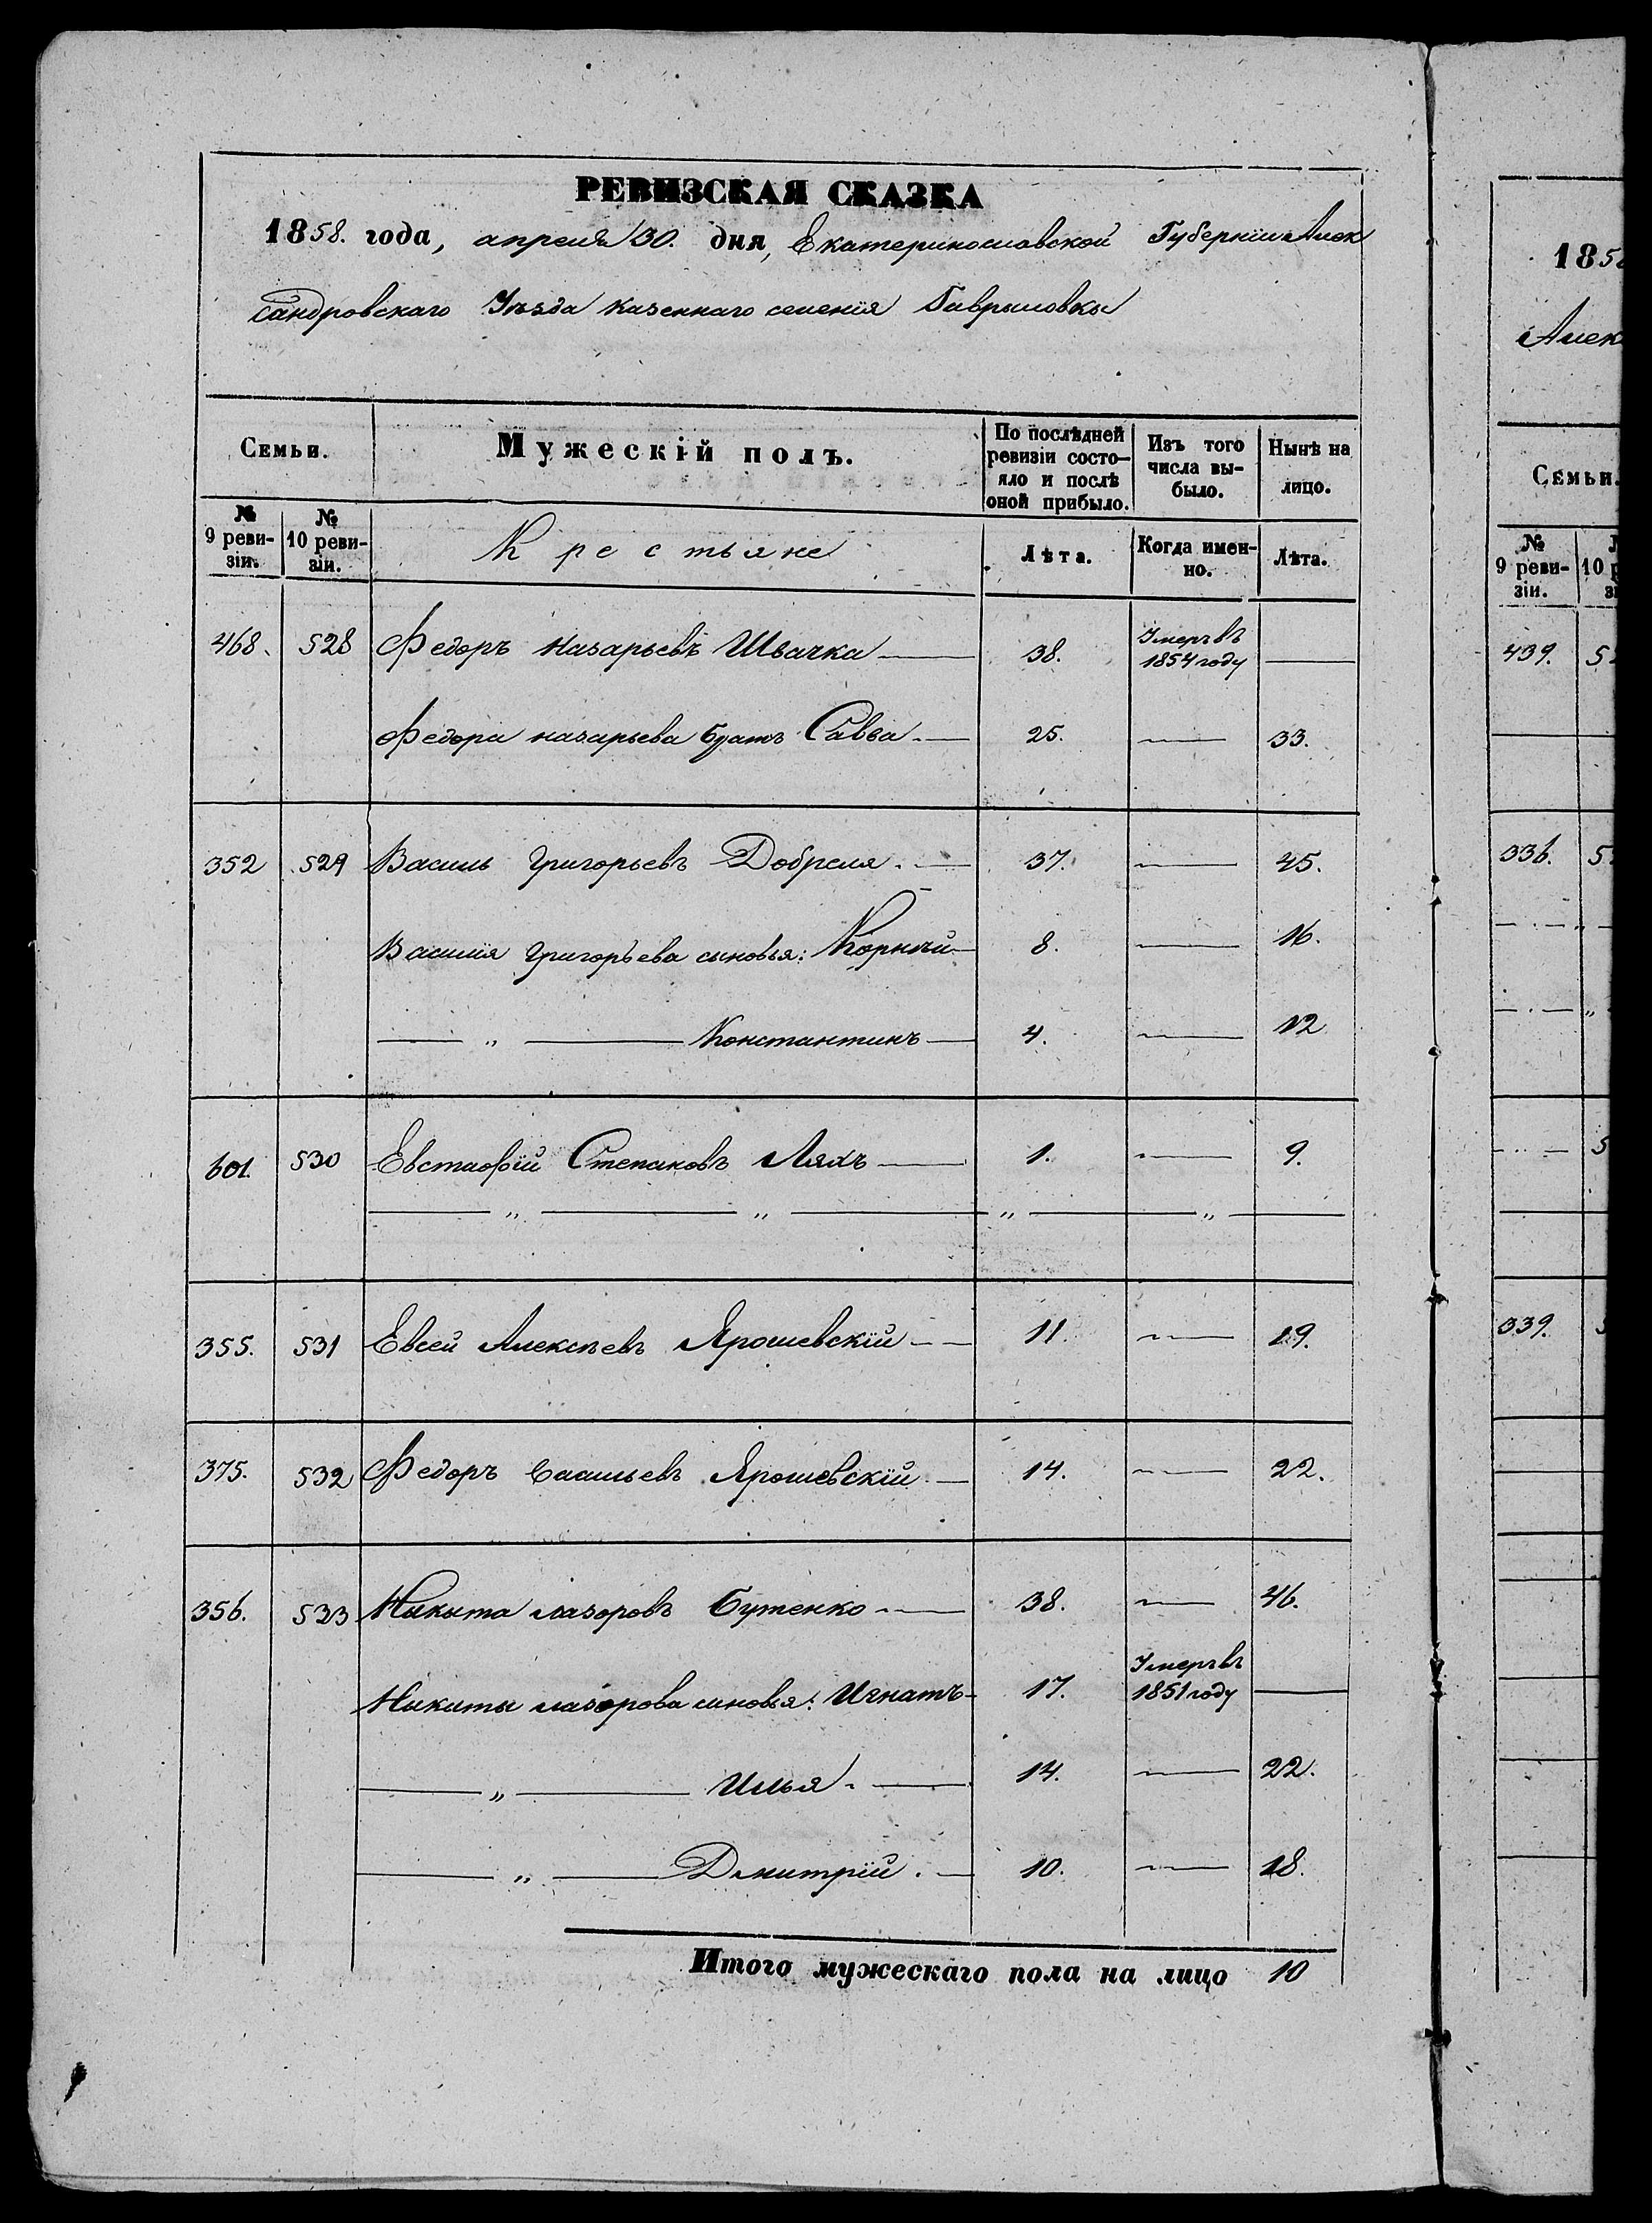 РЕВИЗСКАЯ СКАЗКА
1858. года, апреля 30. дня, Екатеринославской Губерніи Алек
сандровскаго Уѣзда казеннаго селенія Гаврыловкы
Семьи. Мужескій полъ. По послѣдней ревизіи состояло и послѣ оной прибыло. Изъ того числа выбыло. Нынѣ на лицо.
№ 9 ревизіи. № 10 ревизіи. Крестьяне Лѣта. Когда именно. Лѣта.
468. 528 Федоръ Назарьевъ Швачка 38. Умеръ въ 1854 году
Федора назарьева братъ Савва 25. 33.
352 529 Василь Григорьевъ Добреля 37. 45.
Василія Григорьева сыновья: Корній 8. 16.
" Константинъ 4. 12
601. 530 Евстафій Степановъ Ляхъ 1. 9.
" " " "
355. 531 Евсей Алексѣевъ Ярошевскій 11. 19.
375. 532 Федоръ Васильевъ Ярошевскій 14. 22.
356. 533 Никыта лазоровъ Бутенко 38. 46.
Никиты лазорова синовья: Игнатъ 17. Умеръ въ 1851 году
" Илья 14. 22.
" Дмитрій 10. 18.
Итого мужескаго пола на лицо 10
185
Алек
Семьи.
№ 9 ревизіи. 10
439. 5
336. 5
5
339.